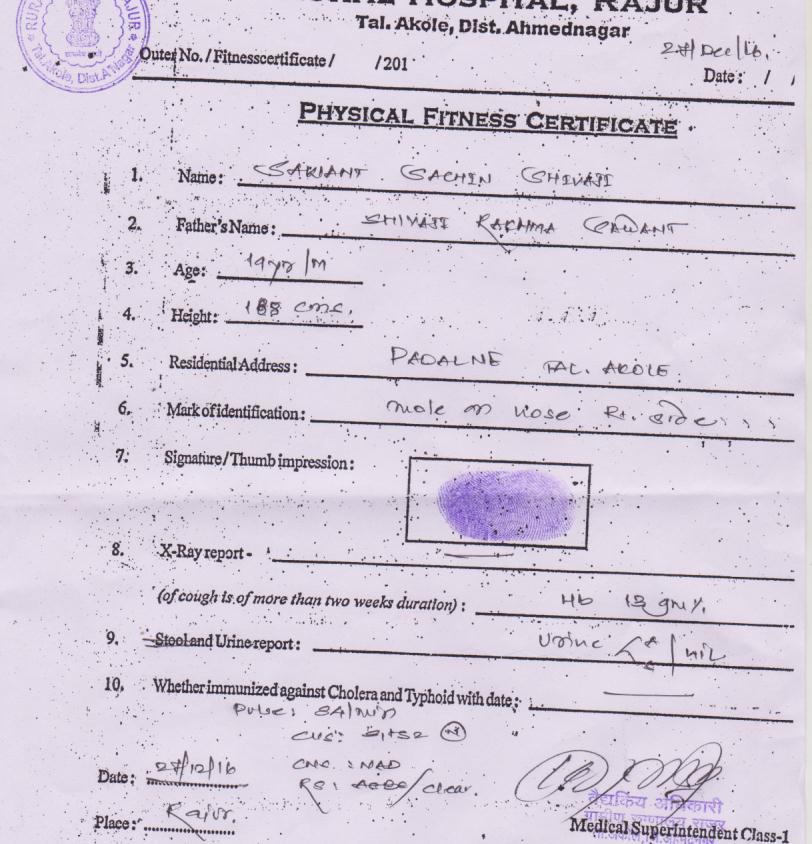 HOSPITAL, RAJUR
Tal. Akole, Dist. Ahmednagar
Tal. Akole, Dist. A'Nagar
27/Dec/16.
Outer No. / Fitnesscertificate / /201
Date: / /
PHYSICAL FITNESS CERTIFICATE
1. Name: SAWANT SACHIN SHIVAJI
2. Father's Name: SHIVAJI RAKHMA SAWANT
3. Age: 19yr / M
4. Height: cms.
5. Residential Address: PADALNE TAL. AKOLE
6. Mark of identification: mole on nose Rt. side
7. Signature/Thumb impression:
8. X-Ray report -
(of cough is of more than two weeks duration): Hb gm%
9. Stool and Urine report: Urine / nil
10. Whether immunized against Cholera and Typhoid with date:
Pulse: 84/min
CVS: S1+S2 N
Date: 27/12/16 CNS: NAD
RS: / clear.
Place: Rajur.
वैद्यकिय अधिकारी
ग्रामीण रुग्णालय राजूर
Medical Superintendent Class-1